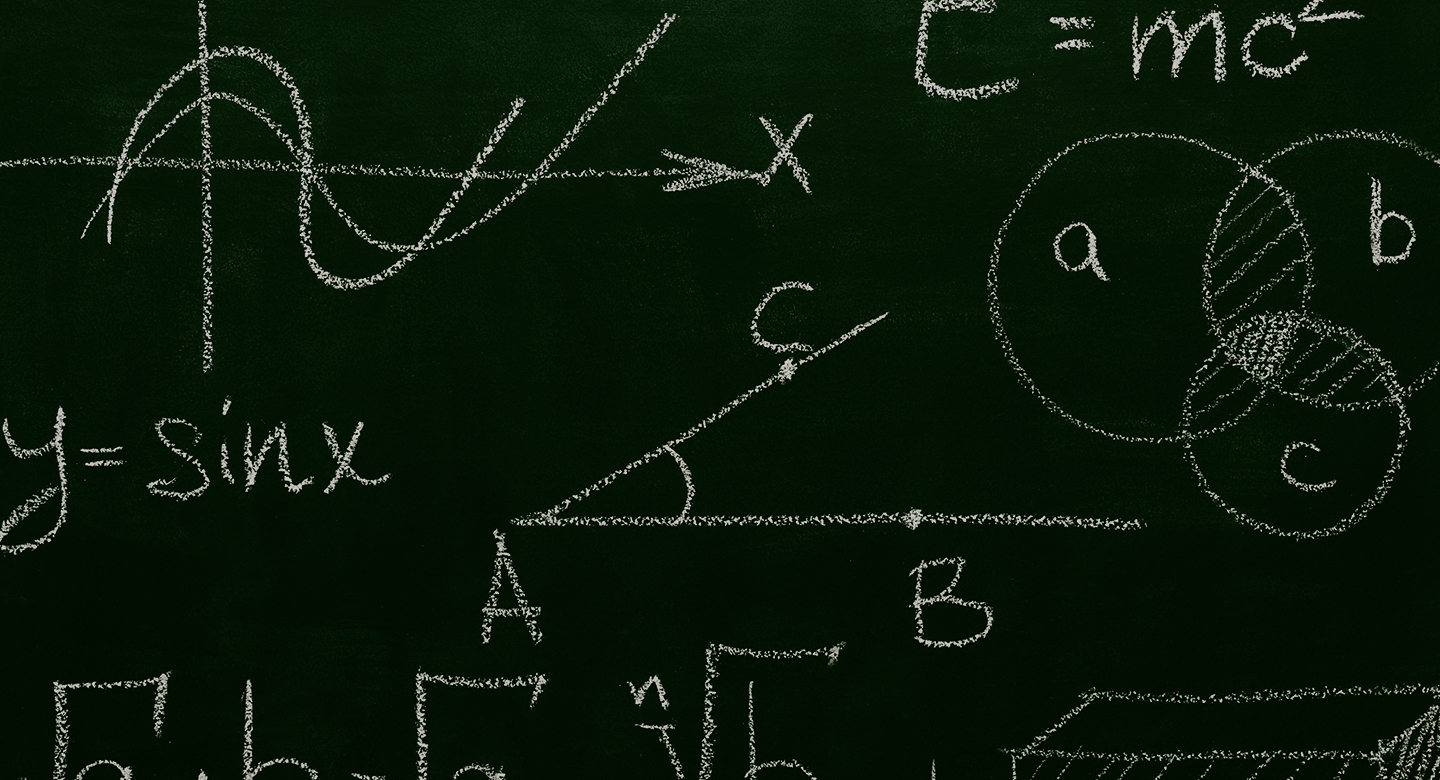 E = mc²
x
a
b
C
y = sinx
c
A
B
n